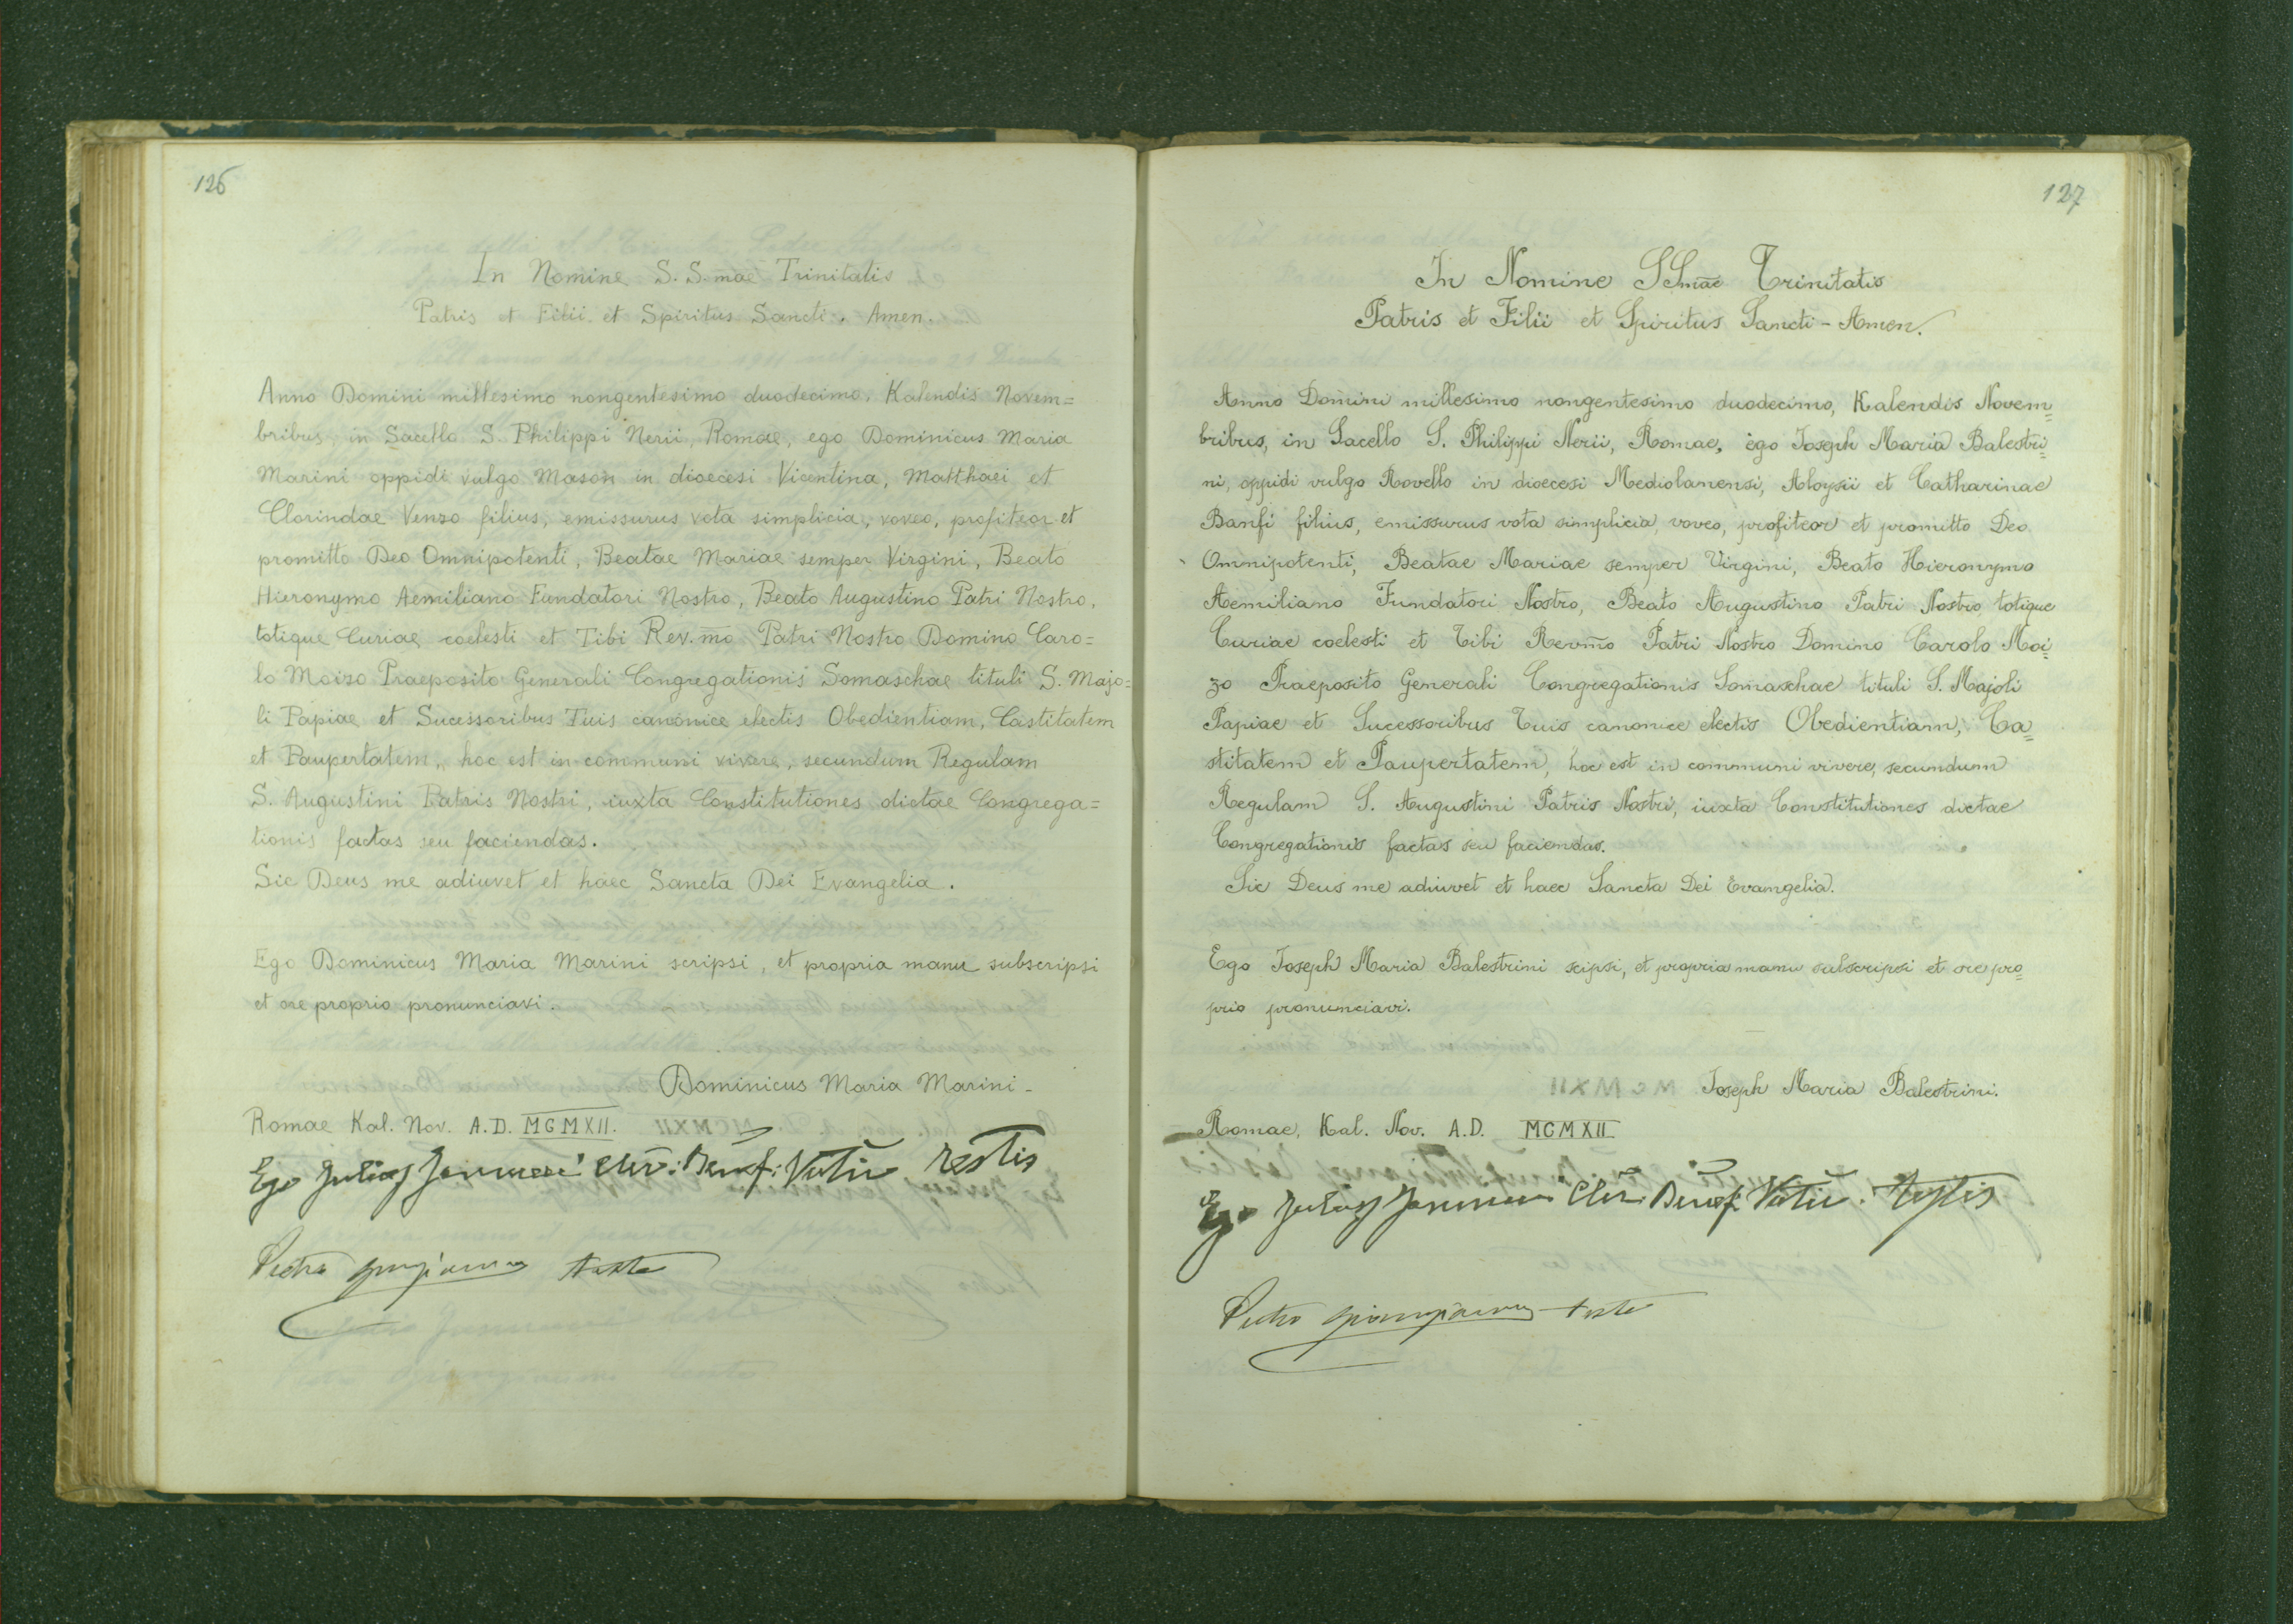 126
In Nomine S. S. mae Trinitatis
Patris et Filii et Spiritus Sancti. Amen.
Anno Domini millesimo nongentesimo duodecimo, Kalendis Novem=
bribus, in Sacello S. Philippi Nerii, Romae, ego Dominicus Maria
Marini oppidi vulgo Mason in dioecesi Vicentina, Matthaei et
Clorindae Venzo filius, emissurus vota simplicia, voveo, profiteor et
promitto Deo Omnipotenti, Beatae Mariae semper Virgini, Beato
Hieronymo Aemiliano Fundatori Nostro, Beato Augustino Patri Nostro,
totique Curiae coelesti et Tibi Rev.mo Patri Nostro Domino Caro=
lo Moizo Praeposito Generali Congregationis Somaschae tituli S. Majo=
li Papiae et Sucessoribus Tuis canonice electis Obedientiam, Castitatem
et Paupertatem, hoc est in communi vivere, secundum Regulam
S. Augustini Patris Nostri, iuxta Constitutiones dictae Congrega=
tionis factas seu faciendas.
Sic Deus me adiuvet et haec Sancta Dei Evangelia.
Ego Dominicus Maria Marini scripsi, et propria manu subscripsi
et ore proprio pronunciavi.
Dominicus Maria Marini -
Romae Kal. Nov. A.D. MCMXII.
Ego Julius Benef: testis
Pietro teste
127
In Nomine SSmae Trinitatis
Patris et Filii et Spiritus Sancti - Amen.
Anno Domini millesimo nongentesimo duodecimo, Kalendis Novem=
bribus, in Sacello S. Philippi Nerii, Romae, ego Joseph Maria Balestri=
ni, oppidi vulgo Rovello in dioecesi Mediolanensi, Aloysii et Catharinae
Banfi filius, emissurus vota simplicia, voveo, profiteor et promitto Deo
Omnipotenti, Beatae Mariae semper Virgini, Beato Hieronymo
Aemiliano Fundatori Nostro, Beato Augustino Patri Nostro, totique
Curiae coelesti et Tibi Revmo Patri Nostro Domino Carolo Moi=
zo Praeposito Generali Congregationis Somaschae tituli S. Majoli
Papiae et Sucessoribus Tuis canonice electis Obedientiam, Ca=
stitatem et Paupertatem, hoc est in communi vivere, secundum
Regulam S. Augustini Patris Nostri, iuxta Constitutiones dictae
Congregationis factas seu faciendas.
Sic Deus me adiuvet et haec Sancta Dei Evangelia.
Ego Joseph Maria Balestrini scipsi, et propria manu subscripsi et ore pro=
prio pronunciavi.
Joseph Maria Balestrini.
Romae, Kal. Nov. A.D. MCMXII
Ego Julius Benef: testis
Pietro teste